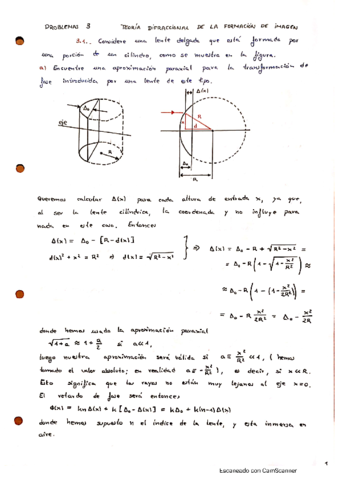 PROBLEMAS 3 TEORÍA DIFRACCIONAL DE LA FORMACIÓN DE IMAGEN
3.1. Considere una lente delgada que está formada por
una porción de un cilindro, como se muestra en la figura.
a) Encuentre una aproximación paraxial para la transformación de
fase introducida por una lente de este tipo.
Δ(x)
Δ₀
R
eje
R
d
Δ₀
R
Queremos calcular Δ(x) para cada altura de entrada x, ya que,
al ser la lente cilíndrica, la coordenada y no influye para
nada en este caso. Entonces:
Δ(x) = Δ₀ - [R - d(x)]
d(x)² + x² = R² ⇒ d(x) = √(R² - x²)
⇒ Δ(x) = Δ₀ - R + √(R² - x²) =
= Δ₀ - R (1 - √(1 - x²/R²)) ≈
≈ Δ₀ - R (1 - (1 - x²/2R²)) =
= Δ₀ - R x²/2R² = Δ₀ - x²/2R
donde hemos usado la aproximación paraxial
√(1+a) ≈ 1 + a/2 si a≪1,
luego nuestra aproximación será válida si a ≡ x²/R² ≪ 1, (hemos
tomado el valor absoluto; en realidad a ≡ - x²/R²), es decir, si x≪R.
Esto significa que los rayos no están muy lejanos al eje x=0.
El retardo de fase será entonces:
Φ(x) = knΔ(x) + k[Δ₀ - Δ(x)] = kΔ₀ + k(n-1)Δ(x)
donde hemos supuesto n el índice de la lente, y esta inmersa en
aire.
1
Escaneado con CamScanner